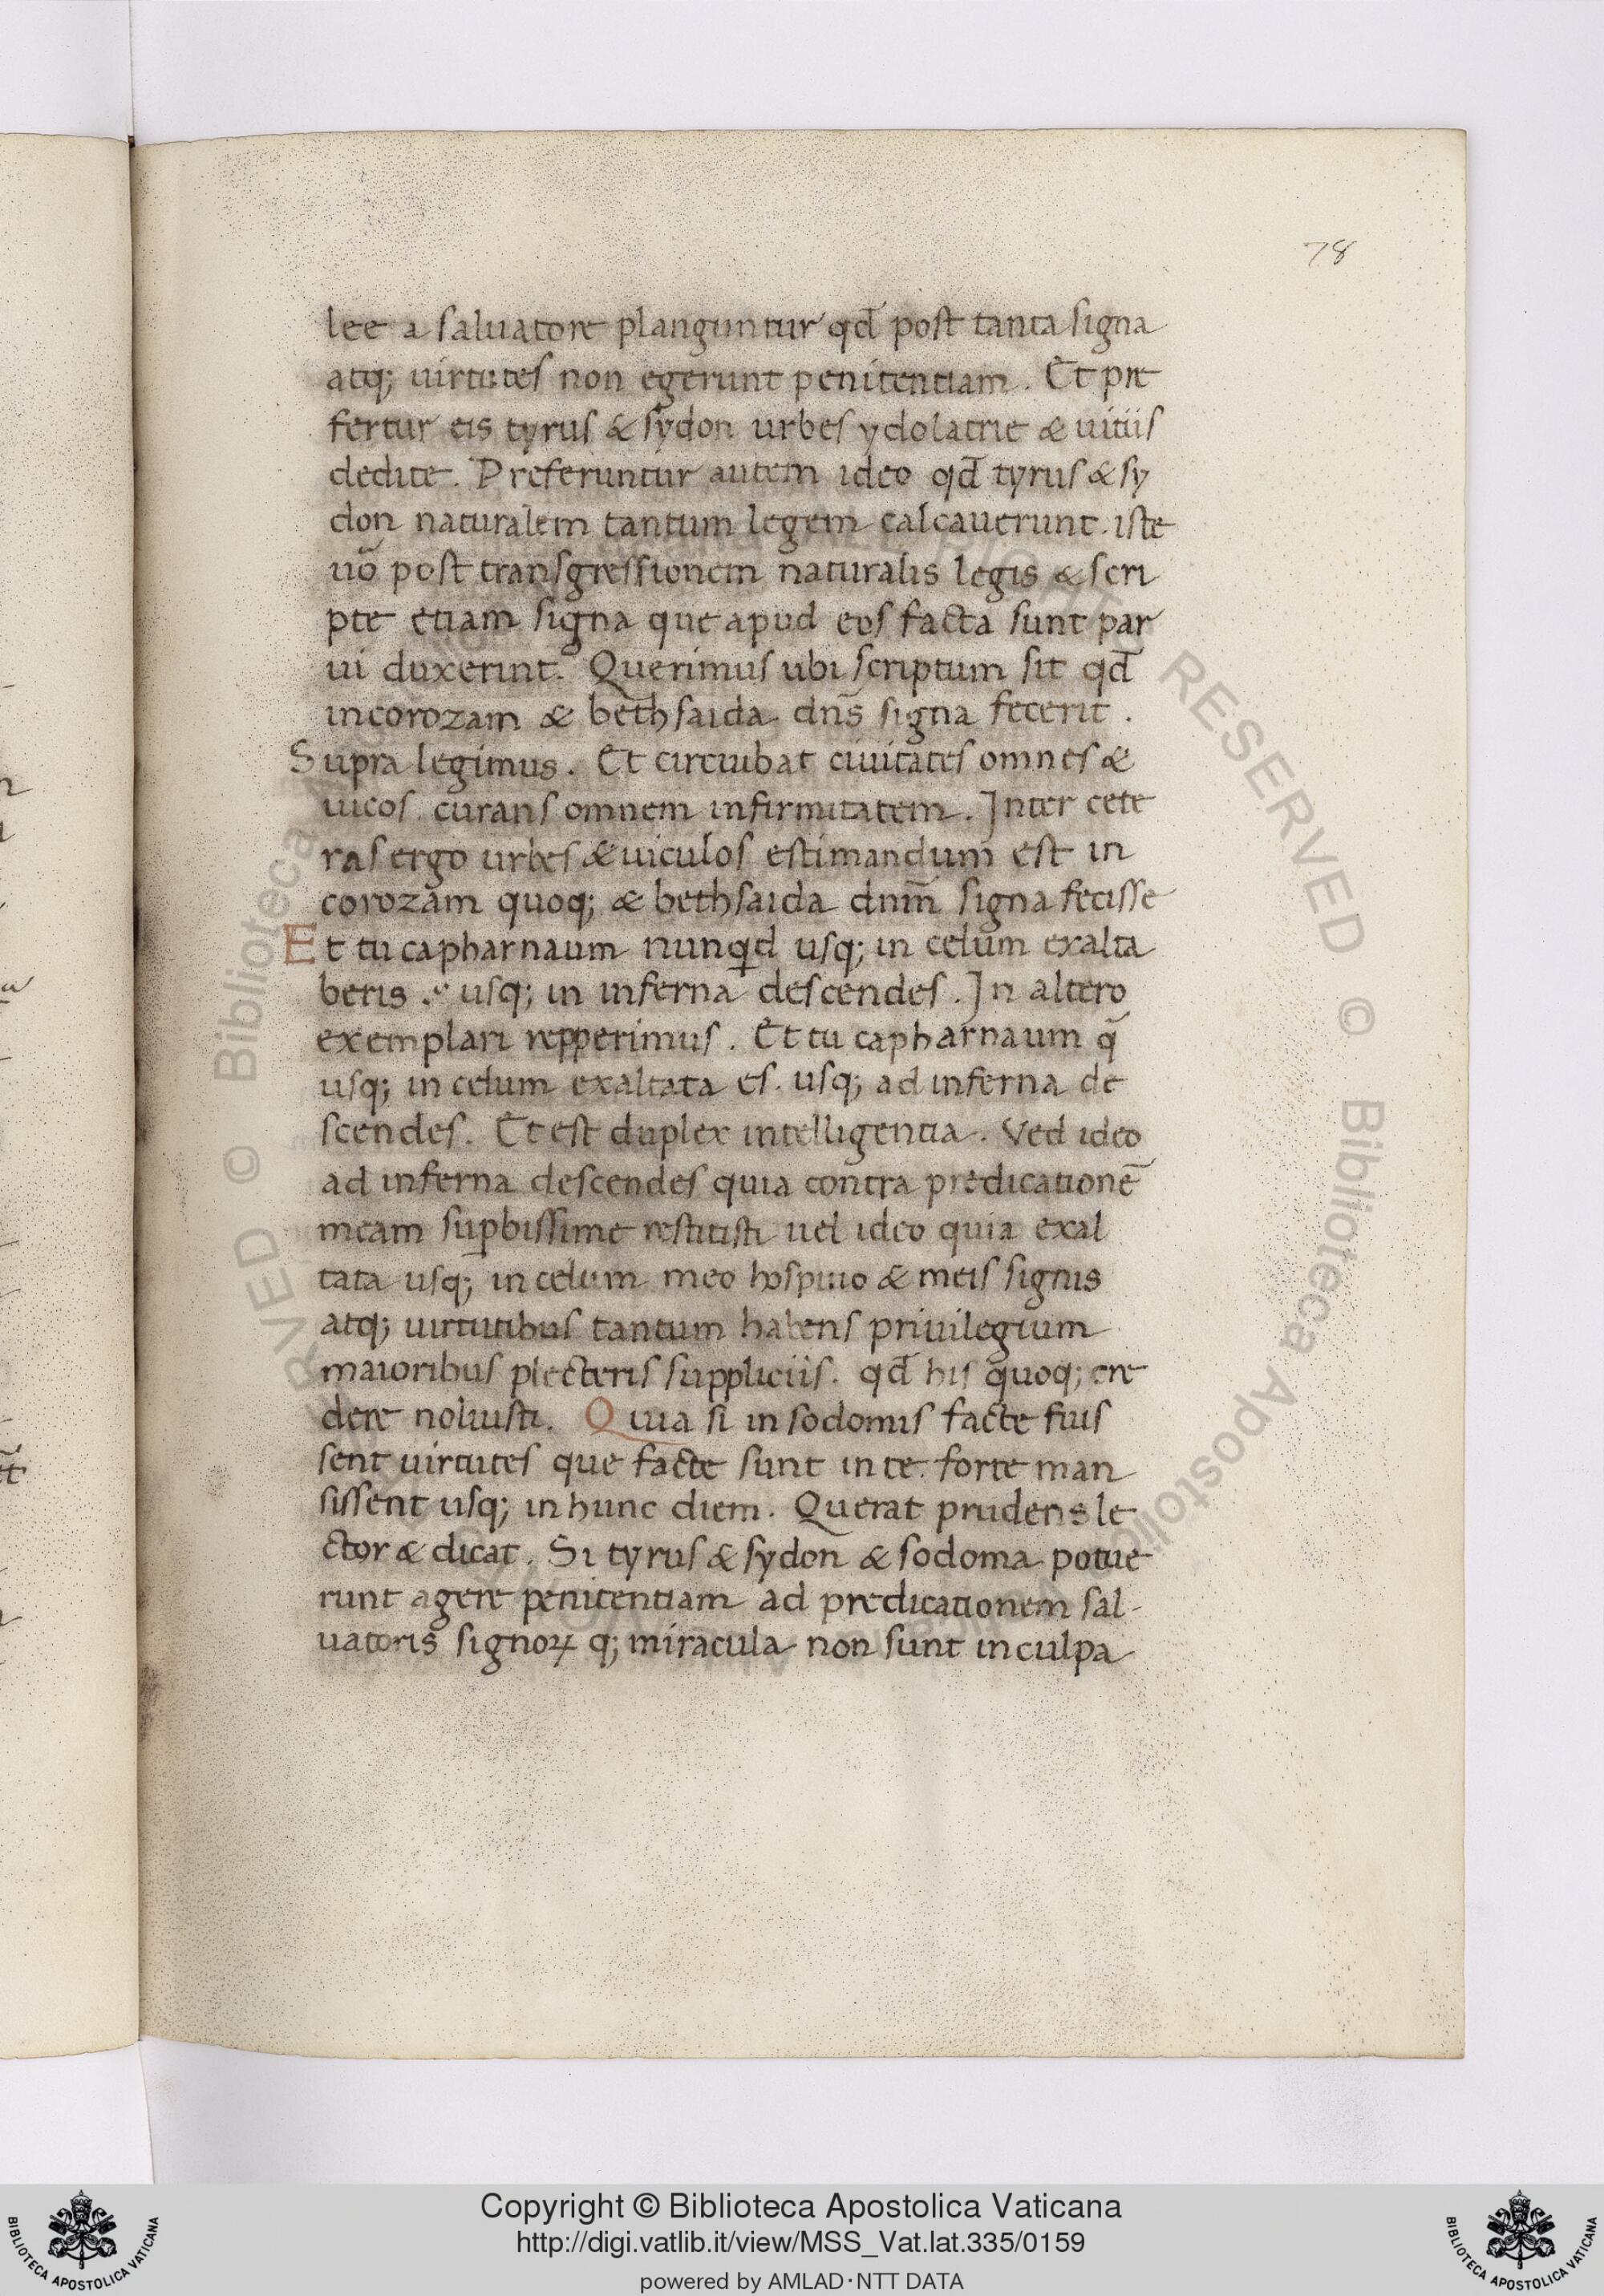 78
lee a saluatore planguntur qd̄ post tanta signa
atq; uirtutes non egerunt penitentiam. Et pre
fertur eis tyrus & sydon urbes ydolatrie & uitiis
dedite. Preferuntur autem ideo qd̄ tyrus & sy
don naturalem tantum legem calcauerunt. iste
uō post transgressionem naturalis legis & scri
pte etiam signa que apud eos facta sunt par
ui duxerint. Querimus ubi scriptum sit qd̄
in corozam & bethsaida dn̄s signa fecerit.
Supra legimus. Et circuibat ciuitates omnes &
uicos curans omnem infirmitatem. Inter cete
ras ergo urbes & uiculos estimandum est in
corozam quoq; & bethsaida dnm̄ signa fecisse
Et tu capharnaum nunqd usq; in celum exalta
beris usq; in inferna descendes. In altero
exemplari repperimus. Et tu capharnaum q̄
usq; in celum exaltata es. usq; ad inferna de
scendes. Et est duplex intelligentia. Vel ideo
ad inferna descendes quia contra predicationē
meam suꝑbissime restitisti uel ideo quia exal
tata usq; in celum meo hospitio & meis signis
atq; uirtutibus tantum habens priuilegium
maioribus plecteris suppliciis. qd̄ his quoq; cre
dere noluisti. Quia si in sodomis facte fuis
sent uirtutes que facte sunt in te. forte man
sissent usq; in hunc diem. Querat prudens le
ctor & dicat. Si tyrus & sydon & sodoma potue
runt agere penitentiam ad predicationem sal-
uatoris signoꝝ q; miracula non sunt in culpa
Copyright © Biblioteca Apostolica Vaticana
http://digi.vatlib.it/view/MSS_Vat.lat.335/0159
powered by AMLAD·NTT DATA
BIBLIOTECA APOSTOLICA VATICANA
BIBLIOTECA APOSTOLICA VATICANA